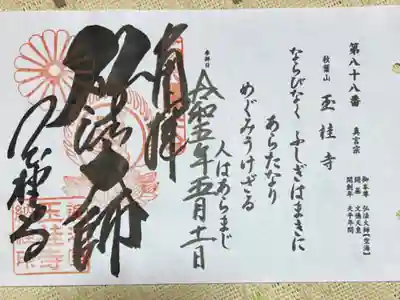 第八十八番　真言宗
御本尊　弘法大師【空海】
開基
開創年　天平年間
秋葉山　玉桂寺
ならびなく　ふしぎはまきに
あらたなり
めぐみうけざる
人はあらまじ
参拝日
令和五年五月十一日
奉拝
弘法大師
玉桂寺
玉桂寺
納経印